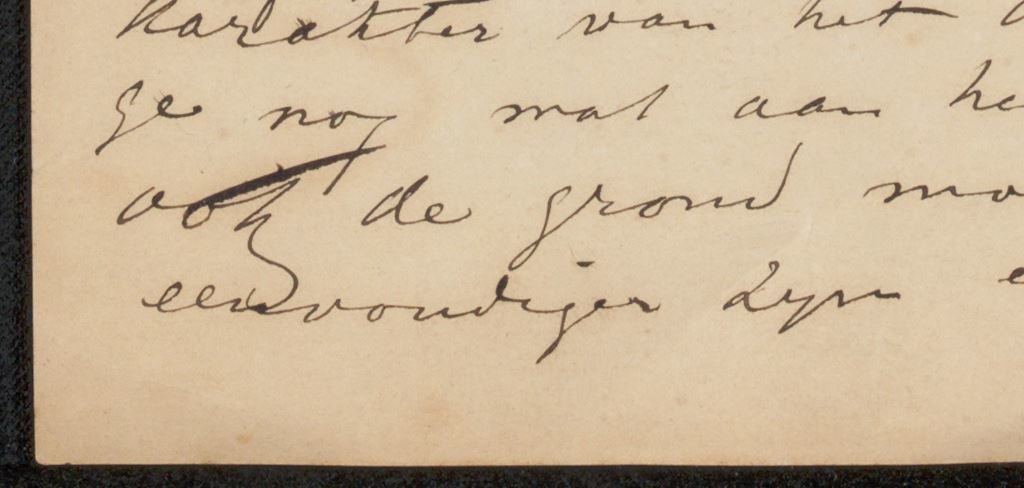 karakter van het
ge nog wat aan he
ook de grond mo
eenvoudiger zyn e